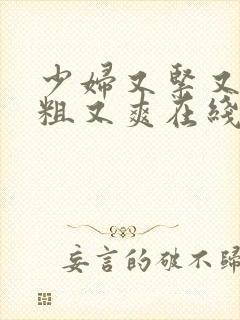 少婦又緊又
粗又爽在綫
妄言的破不歸